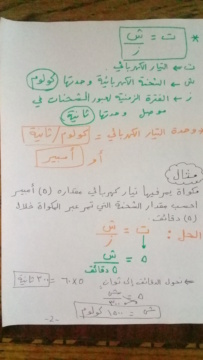 * ت = ش / ز
ت ← التيار الكهربائي
ش ← الشحنة الكهربائية وحدتها كولوم
ز ← الفترة الزمنية لعبور الشحنات في
موصل وحدتها ثانية
* وحدة التيار الكهربائي = كولوم / ثانية
أو أمبير
مثال
مكواة يمر فيها تيار كهربائي مقداره (٥) أمبير
احسب مقدار الشحنة التي تمر عبر المكواة خلال
(٥) دقائق.
الحل: ت = ش / ز
٥ = ش / ٥ دقائق
نحول الدقائق إلى ثوان ٥ × ٦٠ = ٣٠٠ ثانية
٥ = ش / ٣٠٠
ش = ١٥٠٠ كولوم
-2-